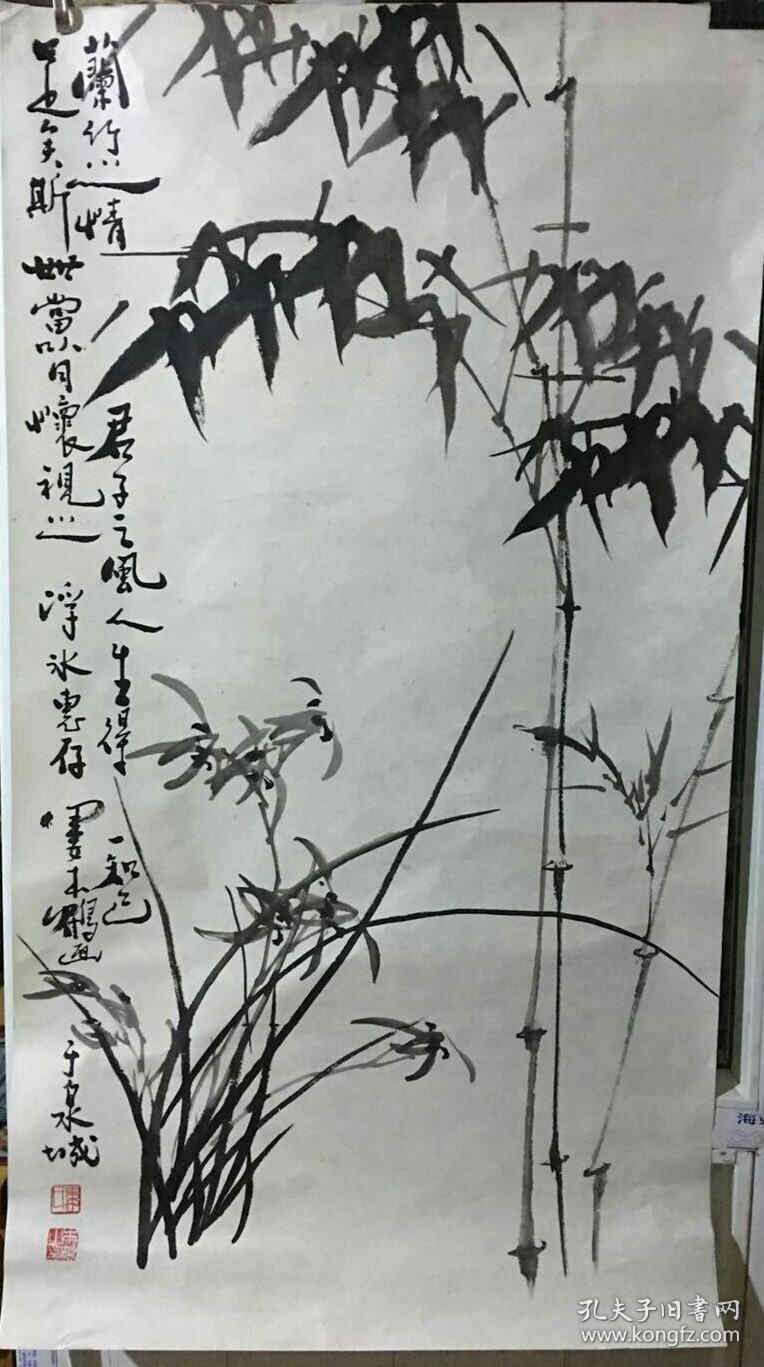 蘭竹之情
君子之風人生得
一知己
足矣斯世當以同懷視之
浮冰惠存
画
于泉城
海
孔夫子旧书网
www.kongfz.com